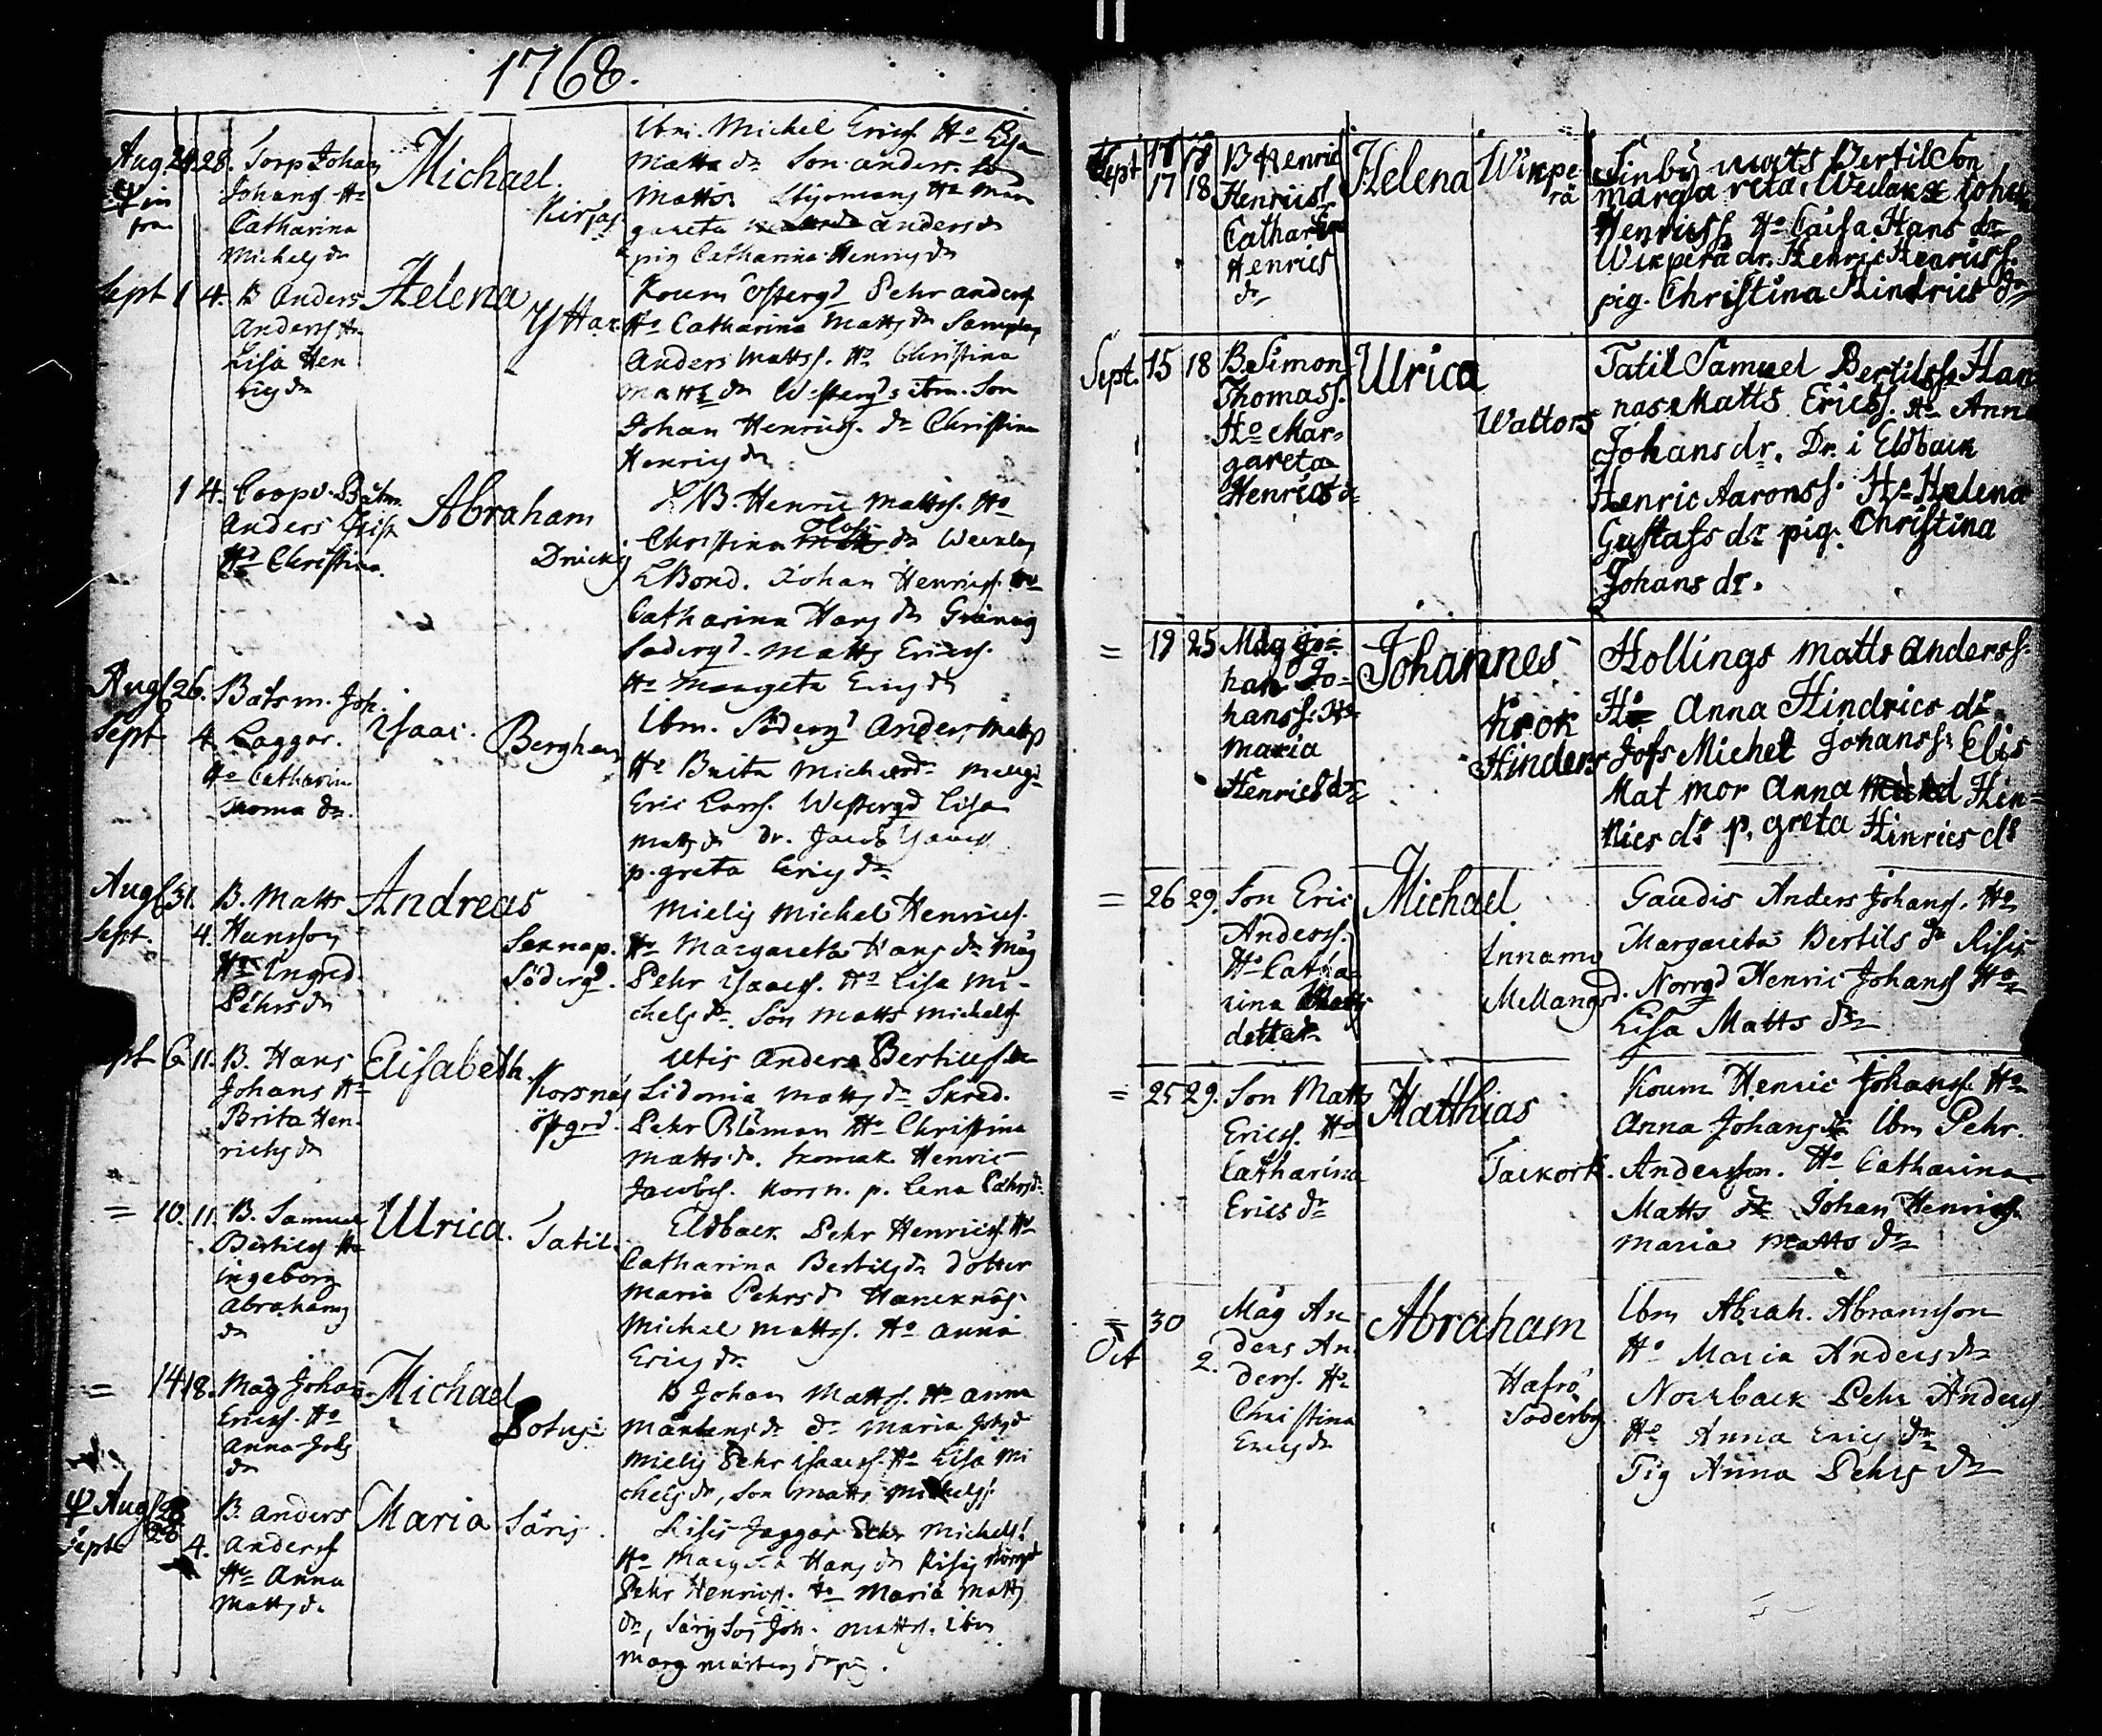 1768.
Aug. 24. 28. Torp Johan
Johanss. Hu
Catharina
Michels dr
Michael
Kirjas
Ibm. Michel Ericss. Hu Lisa
Matts dr Son anders
Matts. Styrmans Hu Mar
gareta anders dr
pig Catharina Henrics dr
Sept 1 4. B Anders
Anderss Hu
Lisa Hen
rics dr
Helena
Yttar
Koum Osterg. Pehr anderss
Hu Catharina Matts dr
Anders Mattss. Hu Christina
Matts dr Westerg. ibm. Son
Johan Henricss. dr Christina
Henrics dr
1 4. Coopv. Båtm.
Anders
Hu Christina.
Abraham
Drickis
LB. Henric Mattss. Hu
Christina Olofs dr
LBond. Johan Henricss. Hu
Catharina Hans dr
Soderg. Matts Ericss.
Hu Margeta Erics dr
Aug 26.
Sept 4.
Båtsm. Joh.
Laggar.
Hu Catharin
Thoma dr.
Isaac.
Bergham
Ibm. Söderg. Anders Matss
Hu Brita Michels dr
Eric Larss. Westergd Lisa
Matts dr dr. Jacob
p. greta Erics dr
Aug 31.
Sept. 4.
B. Matts
Hansson
Hu Ingred
Pehrs dr
Andreas
Söderg.
Mielis Michel Henricss.
Hu Margareta Hans dr Måg
Pehr Isaacss. Hu Lisa Mi-
chels dr. Son Matts Michelss.
Sept 6 11. B. Hans
Johans Hu
Brita Hen-
richs dr
Elisabeth.
Korsnäs
östgrd.
Utis Anders Bertilss Hu
Sidonia Matts dr Skred.
Pehr Bloman Hu Christina
Matts dr. Henric
Jacobss. Korsn. p. Lena Pehrs dr
= 10. 11. B. Samuel
Bertilss Hu
ingeborg
Abrahams
dr
Ulrica.
Tatil.
Eldback Pehr Henricss. Hu
Catharina Bertils dr dotter
Maria Pehrs dr
Michel Mattss. Hu Anna
Erics dr
= 14 18. Måg Johan
Ericss. Hu
Anna Johs
dr
Michael
B Johan Mattss. Hu Anna
Mårtens dr dr Maria Johs dr
Mielis Pehr Isaacss. Hu Lisa Mi
chels dr, Son Matts Michelss.
Aug 28
Sept 4.
B. anders
Anderss
Hu Anna
Matts dr
Maria
Säris.
Risis Jaggar Pehr Michelss.
Hu Margeta Hans dr Risis Norrgd
Pehr Henricss. Hu Maria Matts
dr, Säris Joh. Mattss. ibm
Marg Mårtens dr pig.
Sept 17 18 B Henric
Henricss.
Catharina
Henrics
dr
Helena
Wikpe
rä
Finby Mats Bertilsson
Margareta, Weilaks Johan
Henricss. Hu Caisa Hans dr
Wikperä dr. Henric Henricss.
pig. Christina Hindrics dr
Sept. 15 18 B. Simon
Thomass.
Hu Mar=
gareta
Henrics dr
Ulrica
Wallors
Tatil Samuel Bertilss. Han
nas Matts Ericss. Hu Anna
Johans dr. Dr. i Eldback
Henric Aaronss. Hu Helena
Gustafs dr pig. Christina
Johans dr.
= 19 25 Måg Jo=
han Jo=
hanss. Hu
Maria
Henrics dr
Johannes
Krok
Hinders
Hollings Matts Anderss.
Hu Anna Hindrics dr
Jofs Michel Johanss. Elis
Mat mor Anna Hin=
rics dr p. greta Hinrics dr
= 26 29. Son Eric
Anderss.
Hu Catha=
rina
Michael
Innamo
Mellangrd.
Gaudis Anders Johanss. Hu
Margareta Bertils dr Risis
Norrgd Henric Johanss Hu
Lisa Matts dr
= 25 29. Son Matts
Ericss. Hu
Catharina
Erics dr
Matthias
Taikort.
Koum Henric Johanss. Hu
Anna Johans dr Ibm Pehr
Andersson. Hu Catharina
Matts dr Johan Henricss.
Maria Matts dr
= 30
Oct 2.
Måg An
ders An
derss. Hu
Christina
Erics dr
Abraham
Hafrö
Söderby
Ibm Abrah. Abramsson
Hu Maria Anders dr
Norrback Pehr Anderss
Hu Anna Erics dr
Pig Anna Pehrs dr